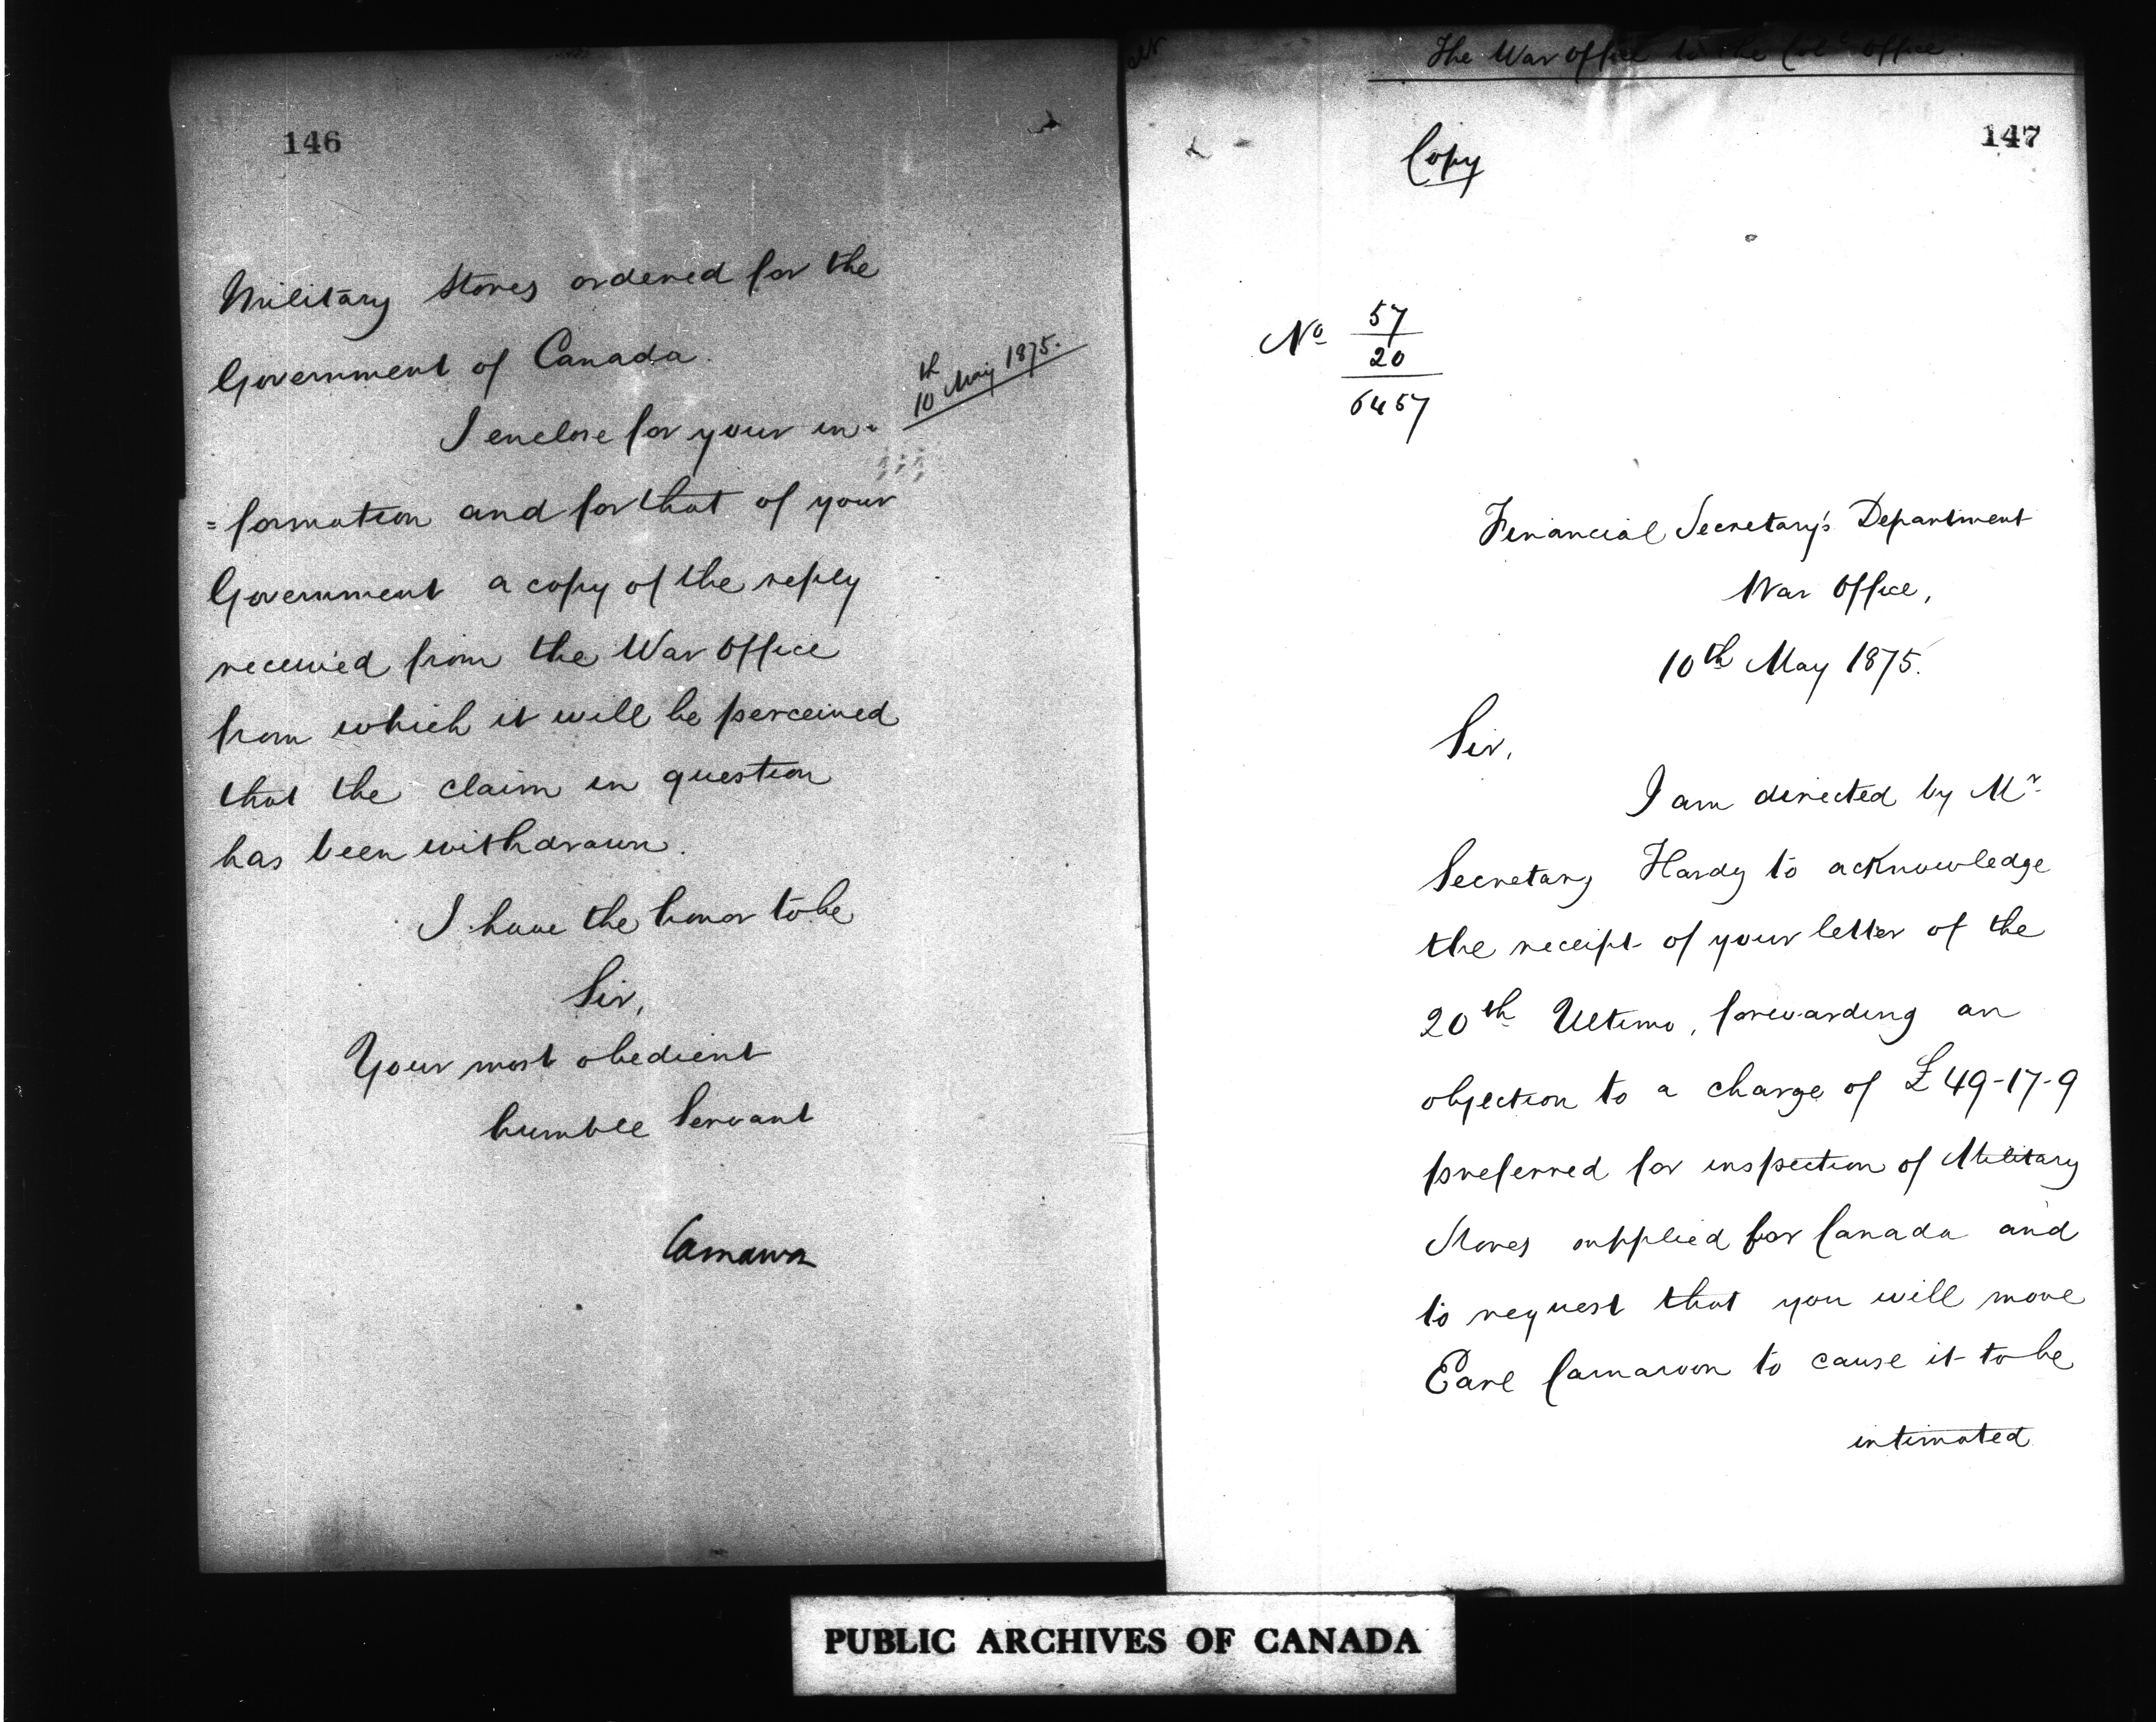 146
Military Stores ordered for the
Government of Canada.
10th May 1875.
I enclose for your in-
=formation and for that of your
Government a copy of the reply
received from the War Office
from which it will be perceived
that the claim in question
has been withdrawn.
I have the honor to be
Sir,
Your most obedient
humble Servant
Carnarvon
The War Office to the Col. Office
147
Copy
No 57
20
6457
Financial Secretary's Department
War Office,
10th May 1875.
Sir,
I am directed by Mr.
Secretary Hardy to acknowledge
the receipt of your letter of the
20th Ultimo, forwarding an
objection to a charge of £49-17-9
preferred for inspection of Military
Stores supplied for Canada and
to request that you will move
Earl Carnarvon to cause it to be
intimated
PUBLIC ARCHIVES OF CANADA